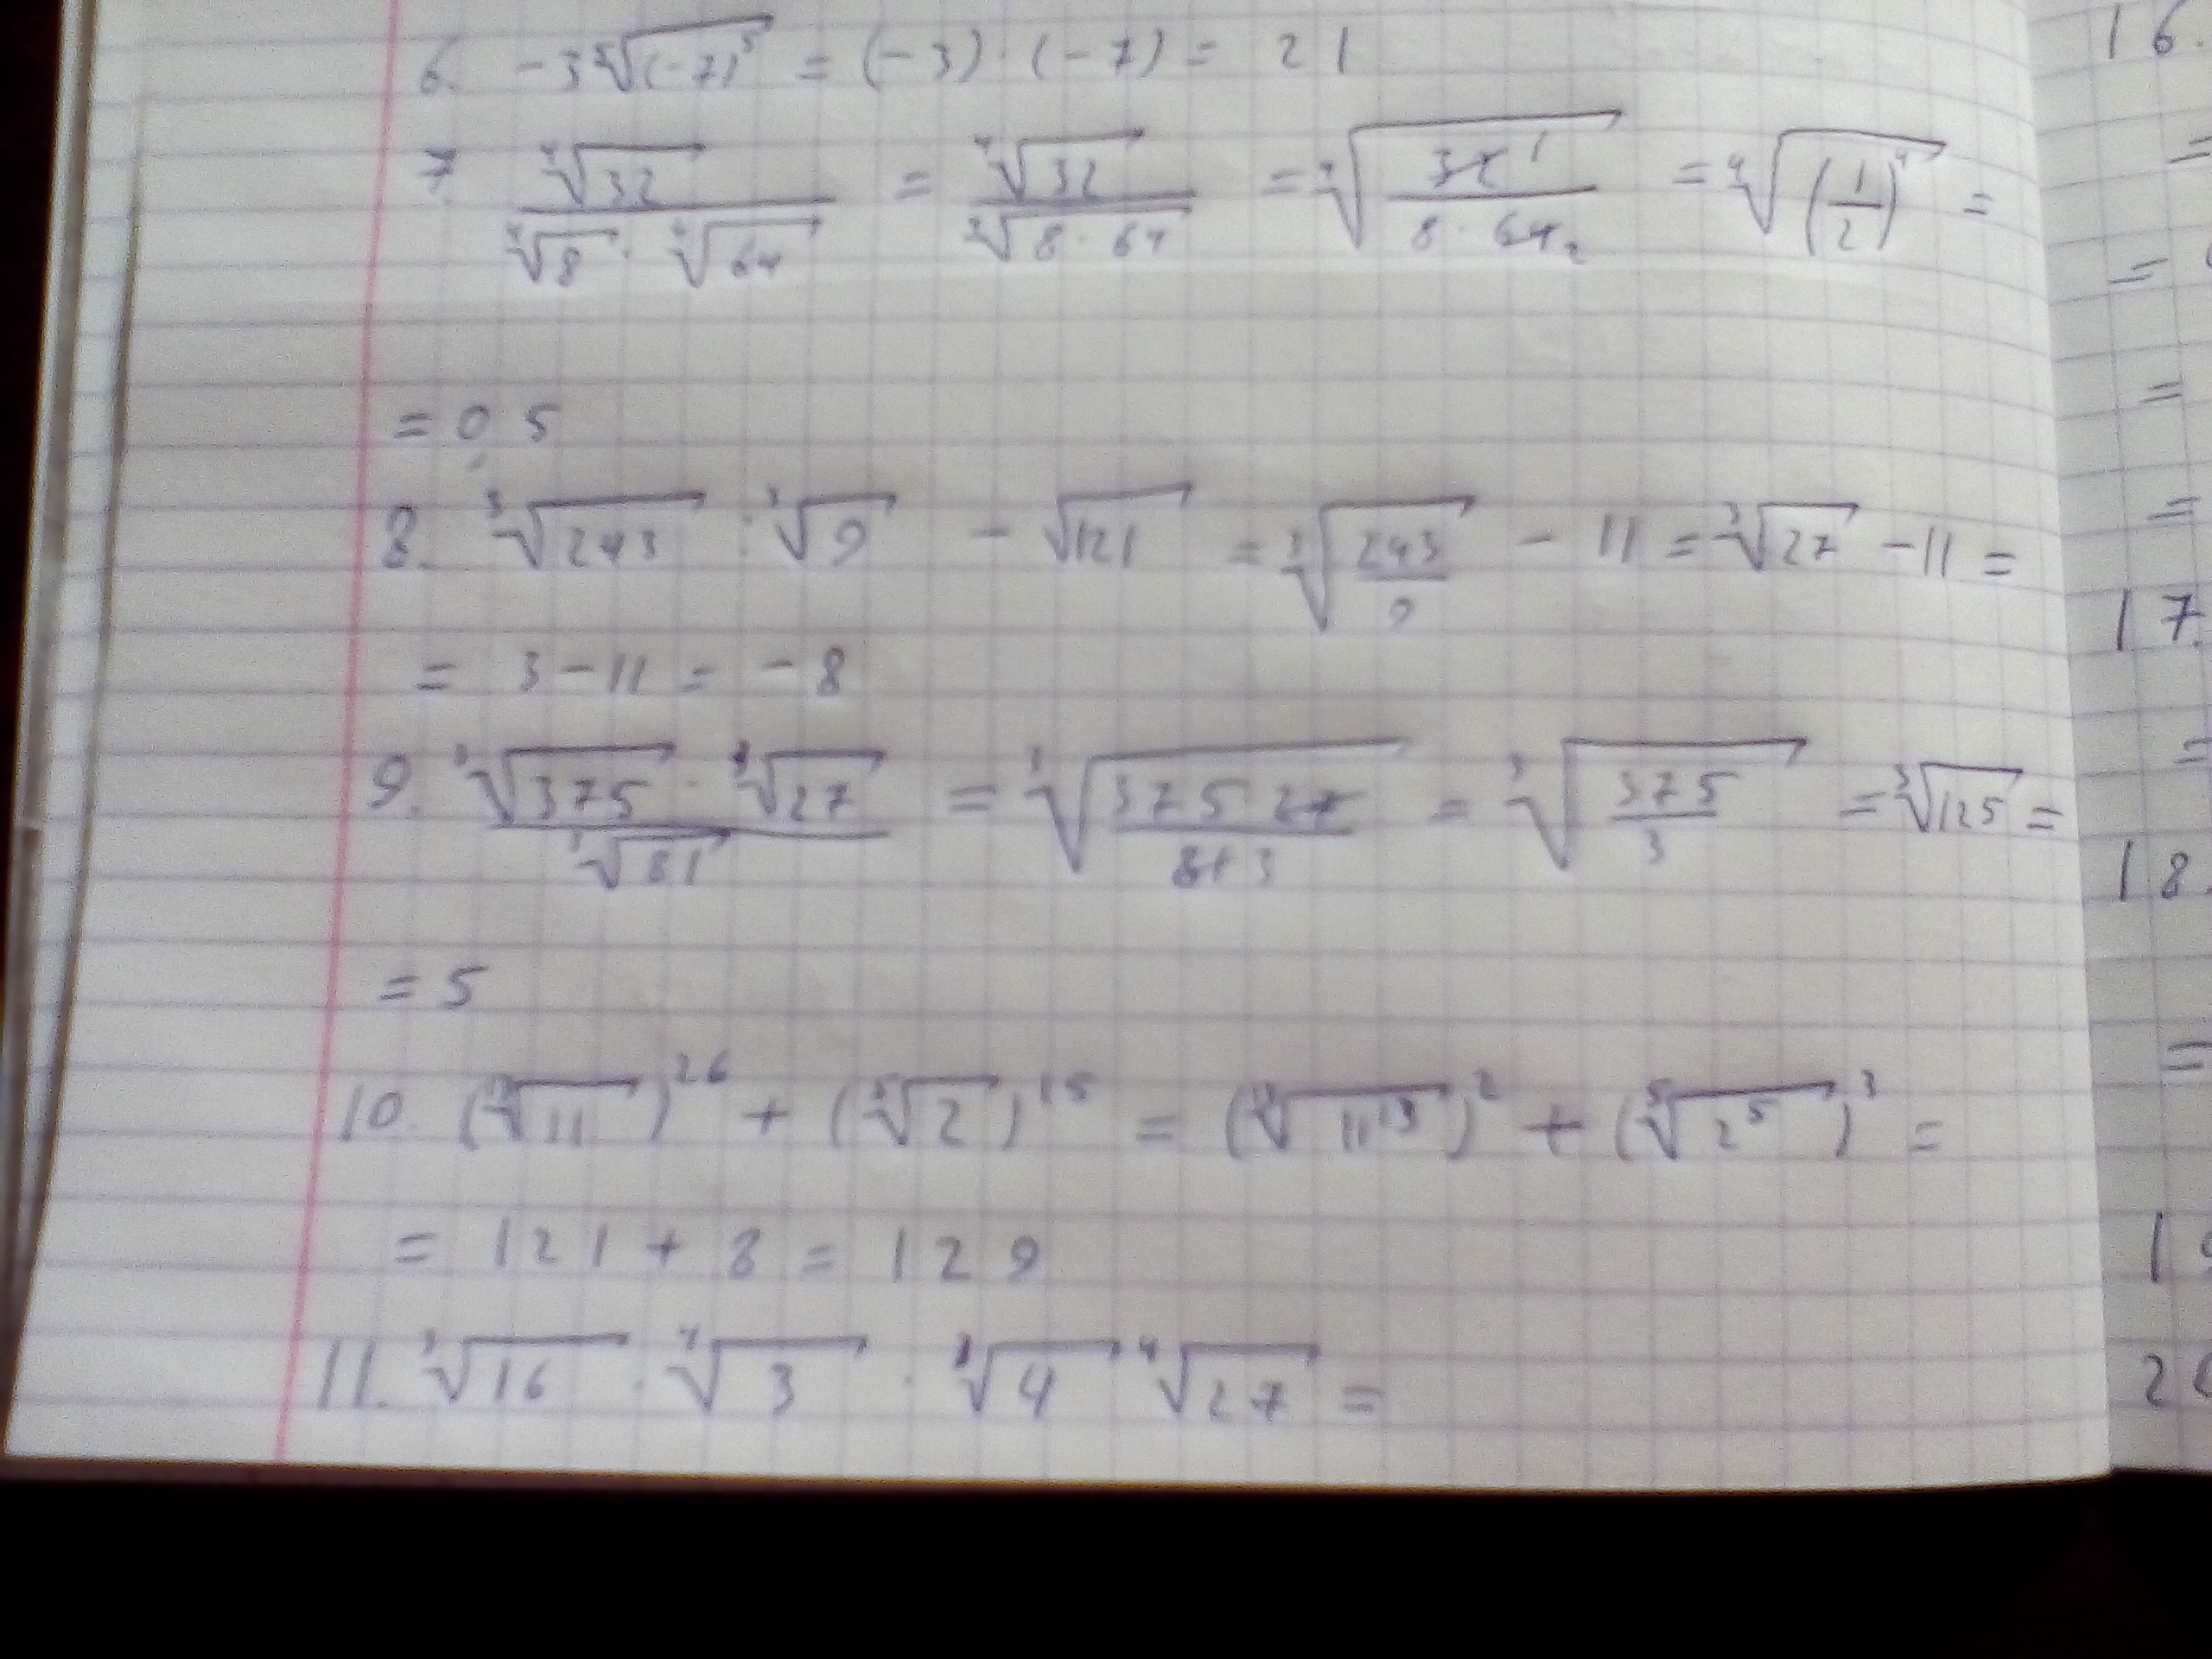 6. -3⁵√(-7)⁵ = (-3)·(-7) = 21
7. ⁴√32 / (⁴√8 · ⁴√64) = ⁴√32 / ⁴√(8·64) = ⁴√(32 1 / (8·64 2)) = ⁴√(1/2)⁴ =
= 0,5
8. ³√243 : ³√9 - √121 = ³√(243/9) - 11 = ³√27 - 11 =
= 3 - 11 = -8
9. (³√375 · ³√27) / ³√81 = ³√(375 27 / 81 3) = ³√(375/3) = ³√125 =
= 5
10. (¹³√11)²⁶ + (⁵√2)¹⁵ = (¹³√11¹³)² + (⁵√2⁵)³ =
= 121 + 8 = 129
11. ³√16 · ⁴√3 · ³√4 ⁴√27 =
16.
=
=
=
=
17.
=
18.
=